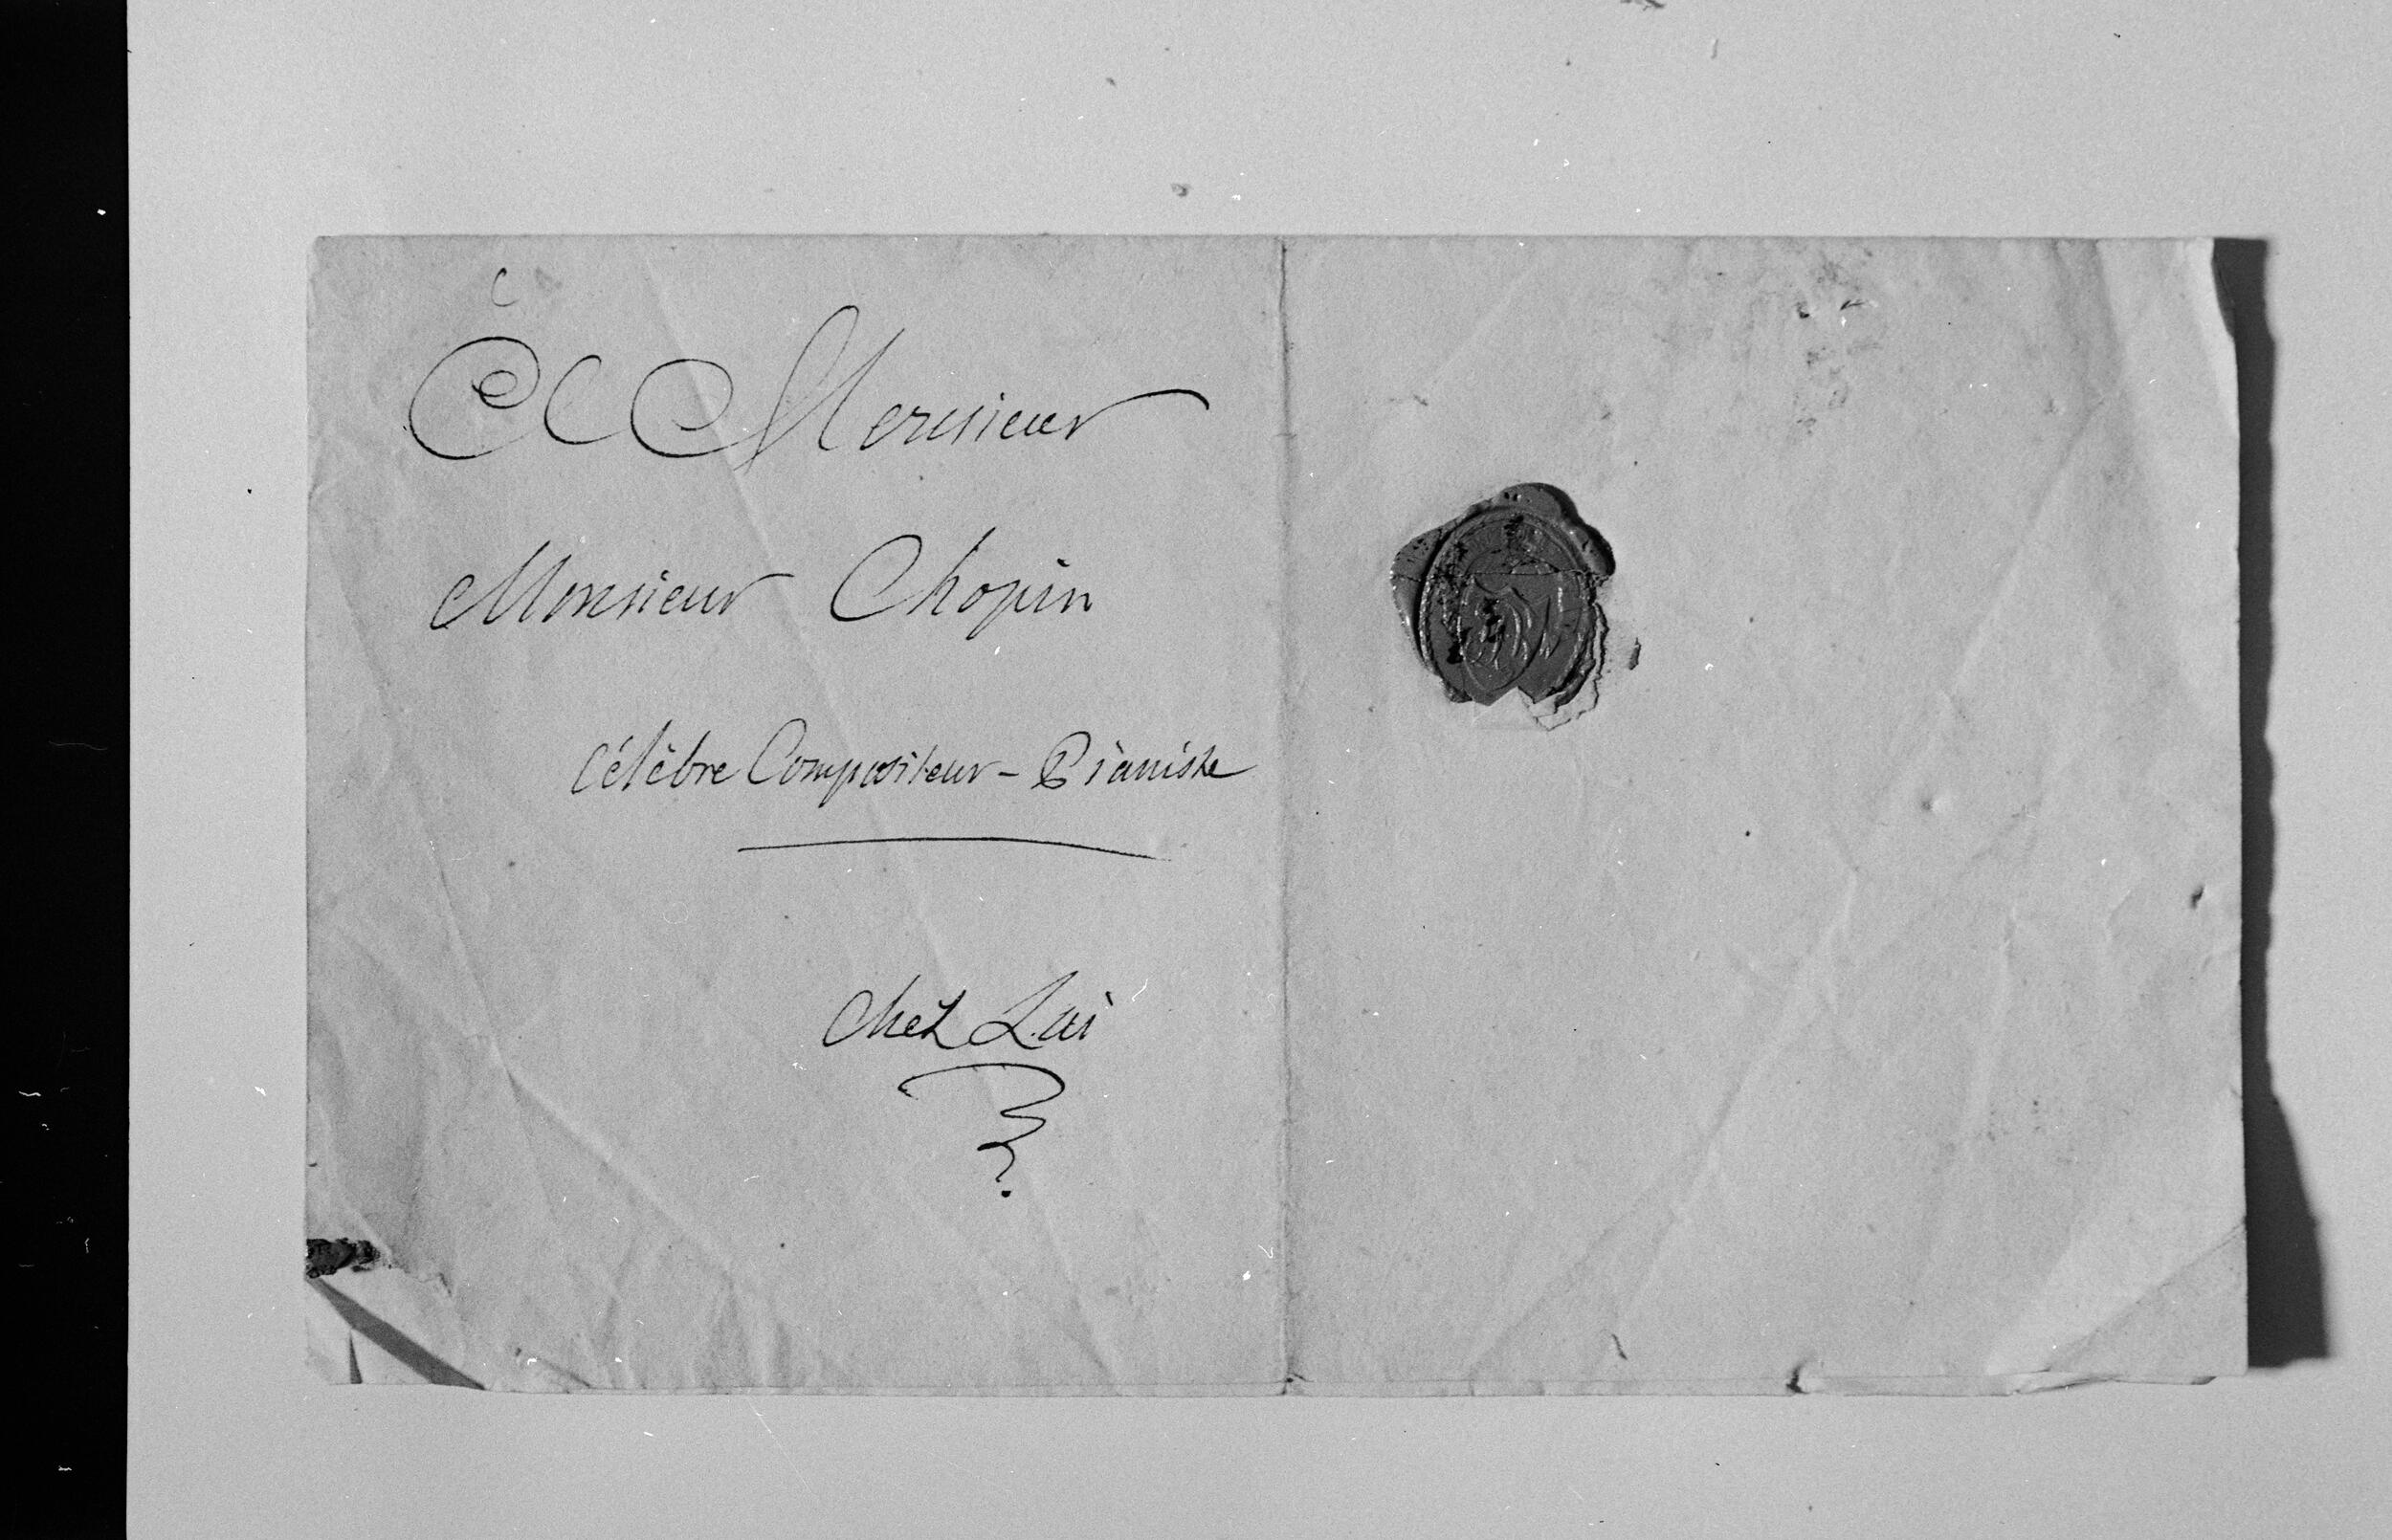 A Monsieur
Monsieur Chopin
Célèbre Compositeur - Pianiste
Chez Lui